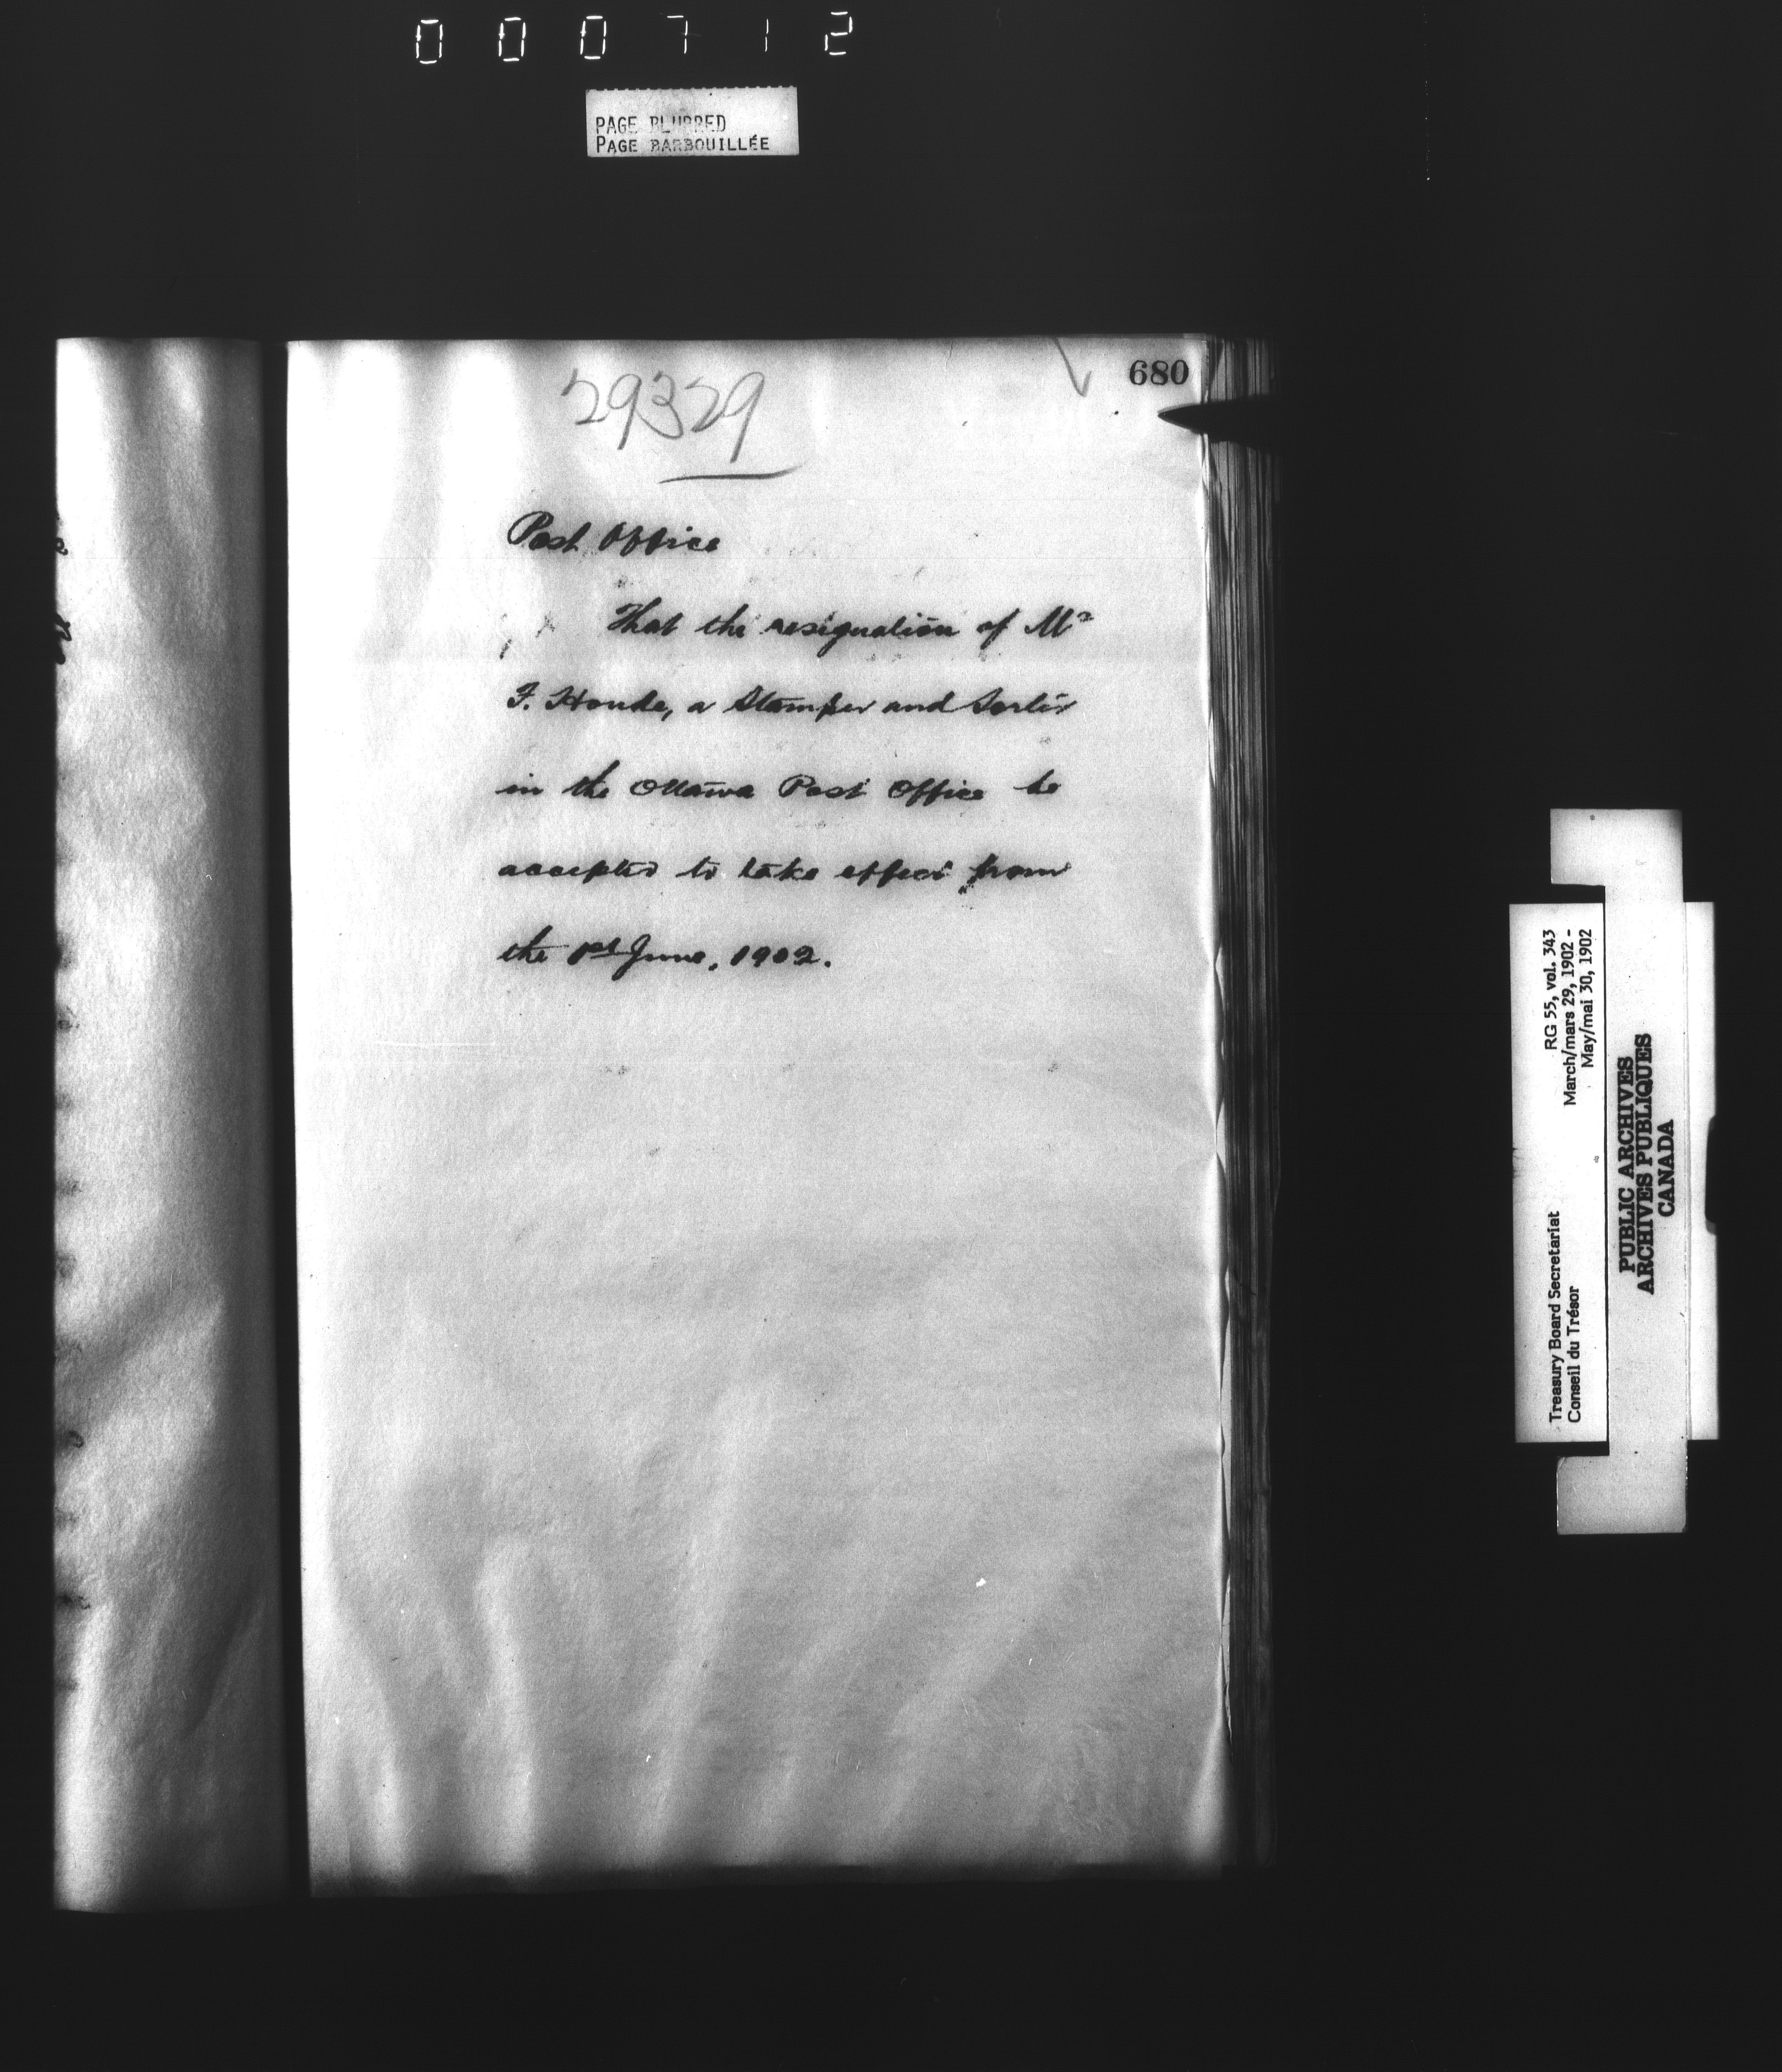 000712
PAGE BLURRED
PAGE BARBOUILLÉE
680
29329
Post Office
That the resignation of Mr
F. Houde, a Stamper and Sorter
in the Ottawa Post Office be
accepted to take effect from
the 1st June, 1902.
Treasury Board Secretariat RG 55, vol. 343
Conseil du Trésor March/mars 29, 1902 -
May/mai 30, 1902
PUBLIC ARCHIVES
ARCHIVES PUBLIQUES
CANADA